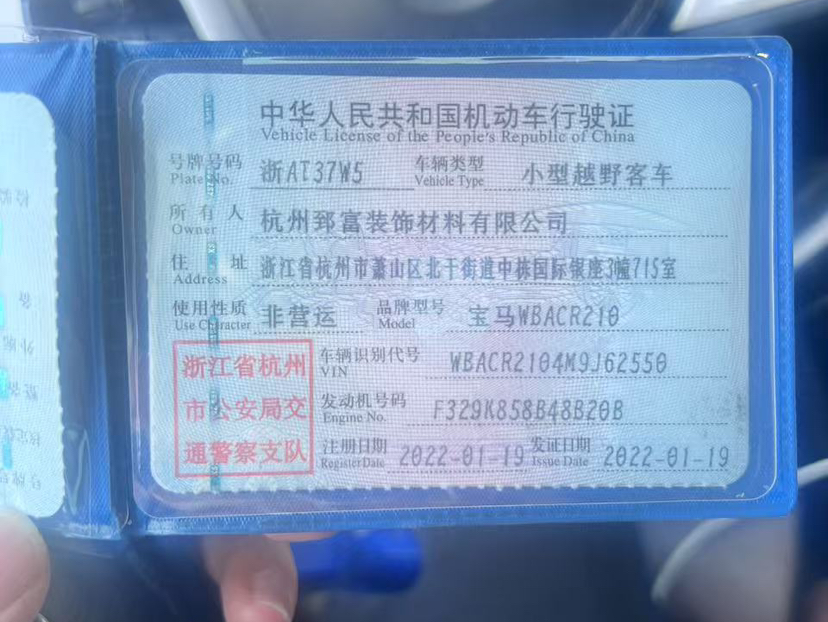 中华人民共和国机动车行驶证
Vehicle License of the People's Republic of China
号牌号码 浙AT37W5 车辆类型 小型越野客车
Plate No. Vehicle Type
所有人 杭州郅富装饰材料有限公司
Owner
住址 浙江省杭州市萧山区北干街道中栋国际银座3幢715室
Address
使用性质 非营运 品牌型号 宝马WBACR210
Use Character Model
浙江省杭州
市公安局交
通警察支队
车辆识别代号 WBACR2104M9J62550
VIN
发动机号码 F329K858B48B20B
Engine No.
注册日期 2022-01-19 发证日期 2022-01-19
Register Date Issue Date